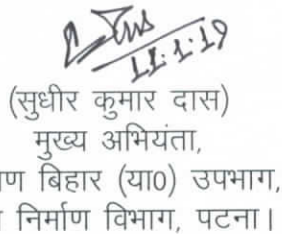 11.1.19
(सुधीर कुमार दास)
मुख्य अभियंता,
ण बिहार (या०) उपभाग,
निर्माण विभाग, पटना।